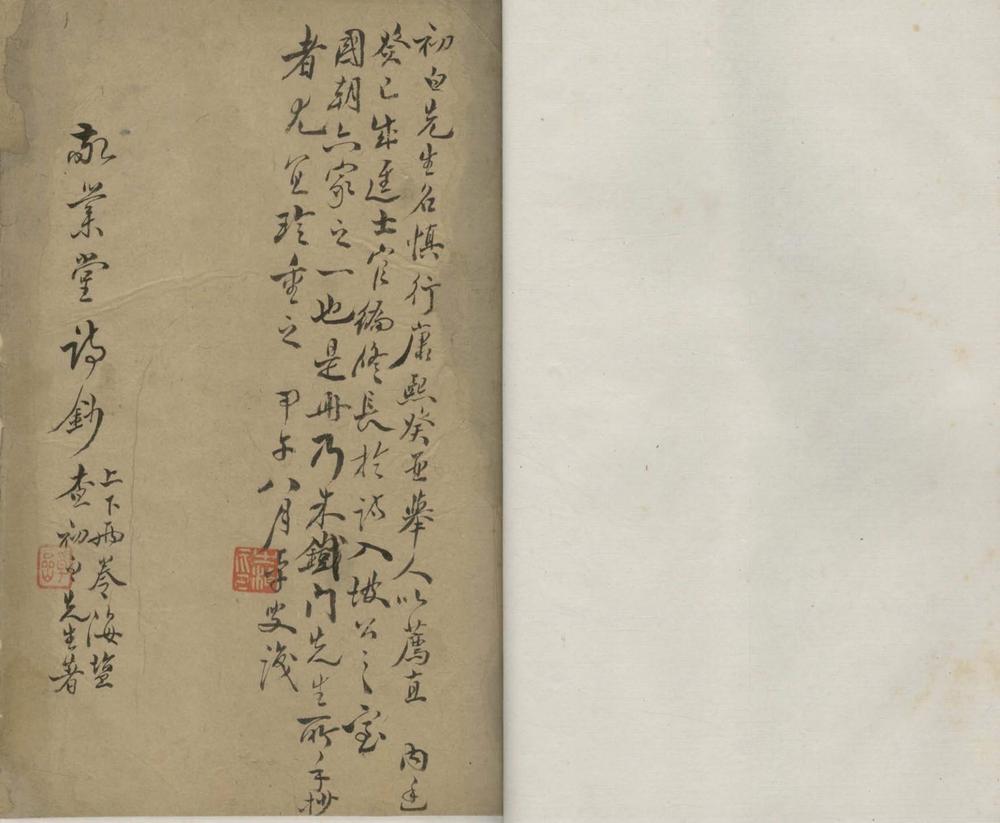 初白先生名慎行康熙癸酉舉人以薦直 內廷
癸已成進士官編修長於詩入坡公之室
國朝六家之一也是冊乃朱鐵門先生所手抄
者尤宜珍重之 甲午八月李叟識
敬業堂詩鈔
上下兩卷海塩
查初白先生著